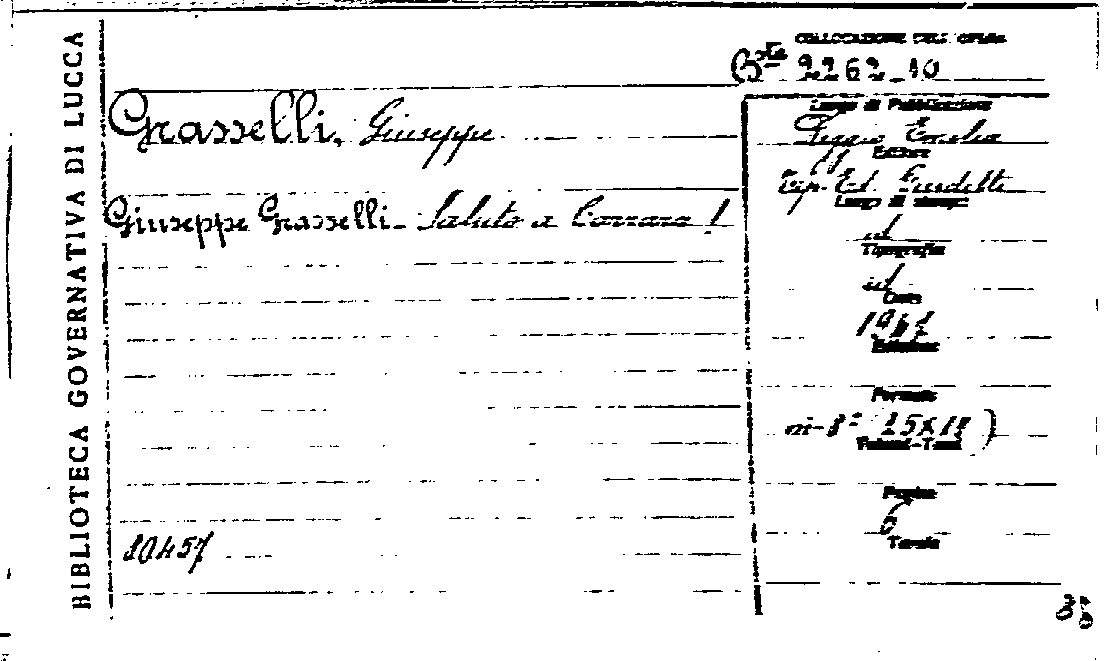 BIBLIOTECA GOVERNATIVA DI LUCCA
COLLOCAZIONE DELL' OPERA
Bta 2262_10
Grasselli, Giuseppe
Giuseppe Grasselli - Saluto a Carrara!
10457
Luogo di Pubblicazione
Reggio Emilia
Editore
Tip. Ed. Guidetti
Luogo di stampa
id
Tipografia
id
Data
Edizione
Formato
in-8°
Volumi-Tomi
Pagine
6
Tavole